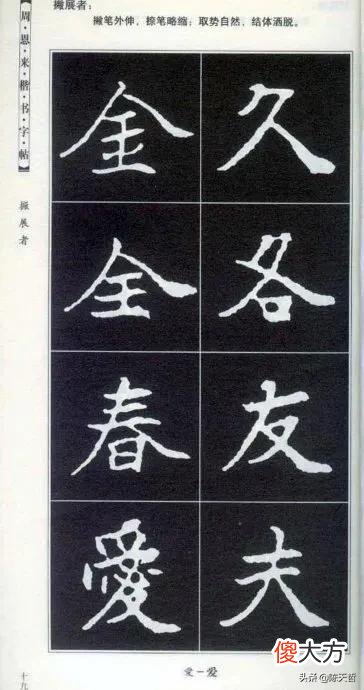 撇展者：
撇笔外伸，捺笔略缩；取势自然，结体洒脱。
【周·恩·来·楷·书·字·帖】
撇展者
久各友夫
金全春愛
愛—爱
十九
傻大方
头条 @陈天哲